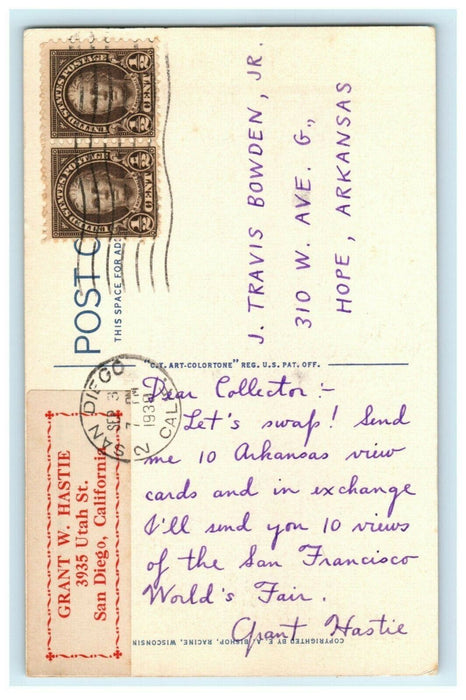 UNITED STATES POSTAGE
1/2 CENT 1/2
UNITED STATES POSTAGE
1/2 CENT 1/2
POST C
THIS SPACE FOR AD
SAN DIEGO
CALIF.
SEP 3
7 PM
1938
2
J. TRAVIS BOWDEN, JR.
310 W. AVE. G.,
HOPE, ARKANSAS
"C.T. ART-COLORTONE" REG. U.S. PAT. OFF.
GRANT W. HASTIE
3935 Utah St.
San Diego, California
Dear Collector:-
Let's swap! Send
me 10 Arkansas view
cards and in exchange
I'll send you 10 views
of the San Francisco
World's Fair.
Grant Hastie
COPYRIGHTED BY E. A. BISHOP, RACINE, WISCONSIN